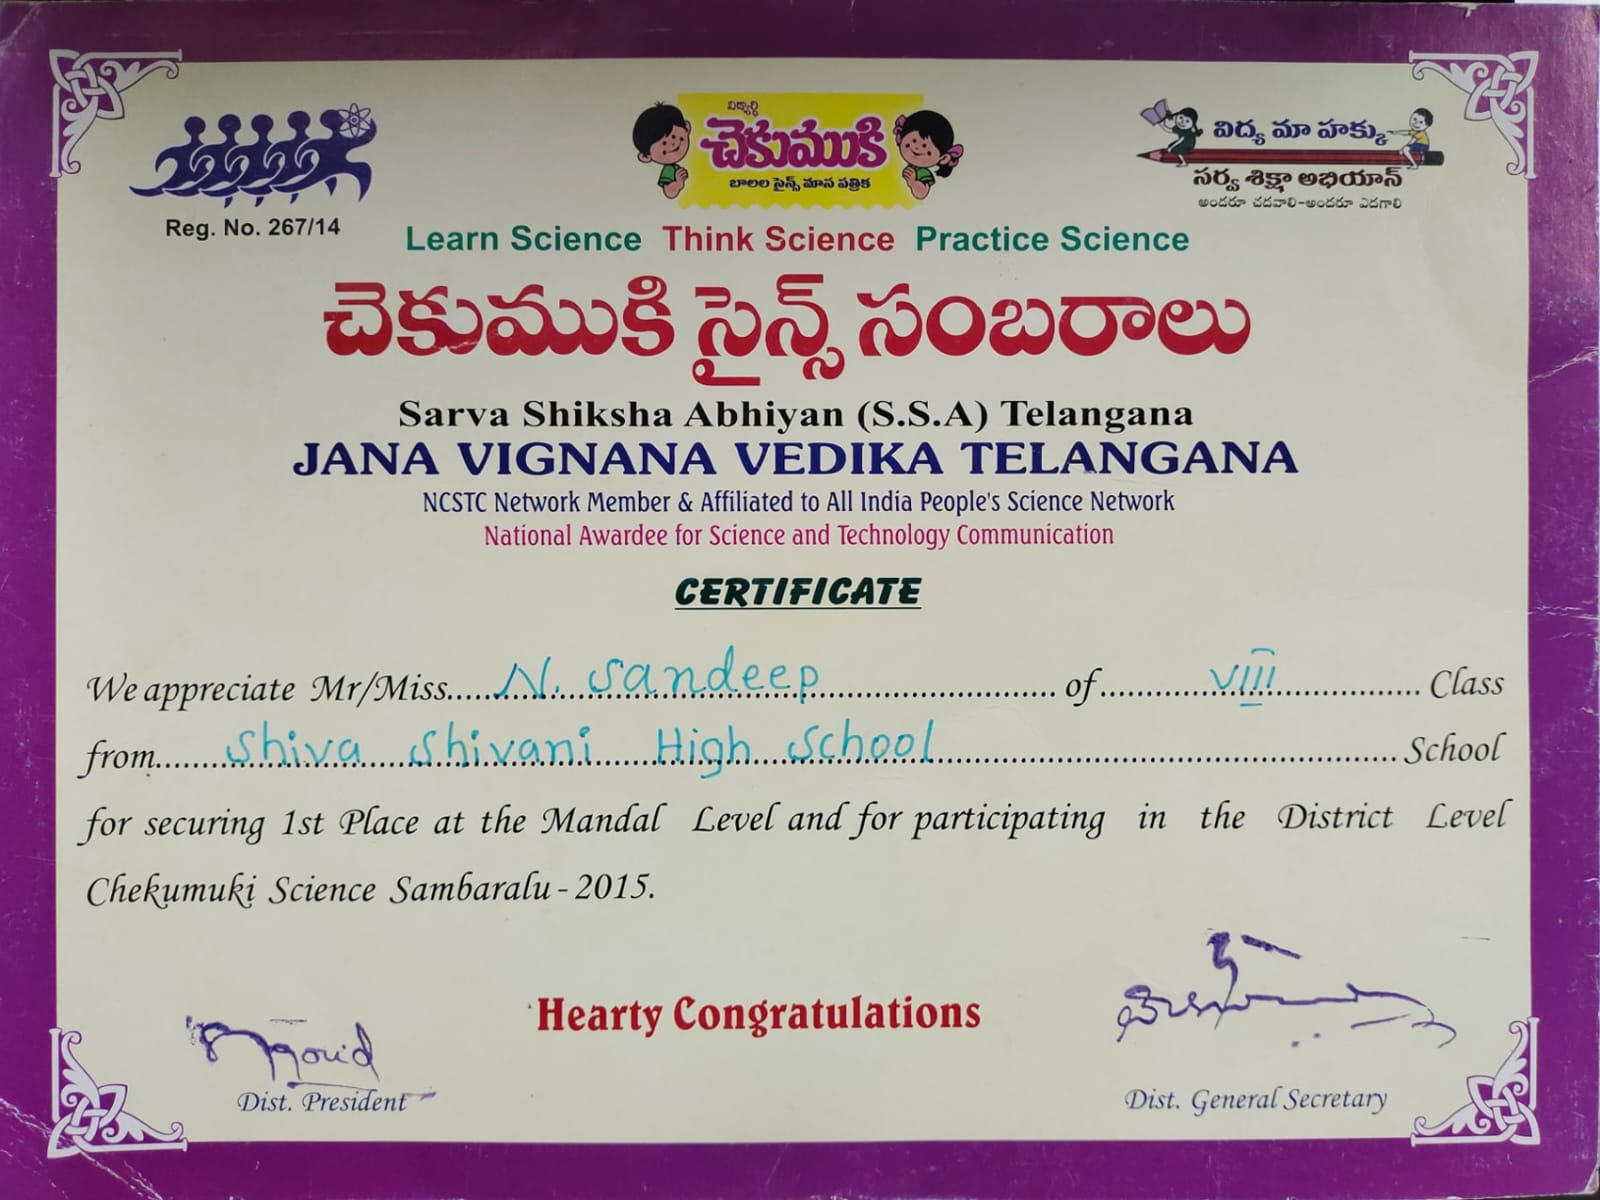 విద్యార్థి
చెకుముకి
బాలల సైన్స్ మాస పత్రిక
విద్య మా హక్కు
సర్వ శిక్షా అభియాన్
అందరూ చదవాలి-అందరూ ఎదగాలి
Reg. No. 267/14
Learn Science Think Science Practice Science
చెకుముకి సైన్స్ సంబరాలు
Sarva Shiksha Abhiyan (S.S.A) Telangana
JANA VIGNANA VEDIKA TELANGANA
NCSTC Network Member & Affiliated to All India People's Science Network
National Awardee for Science and Technology Communication
CERTIFICATE
We appreciate Mr/Miss.....N. Sandeep..........of..........VIII..........Class
from..........Shiva Shivani High School..........School
for securing 1st Place at the Mandal Level and for participating in the District Level
Chekumuki Science Sambaralu - 2015.
Hearty Congratulations
Dist. President
Dist. General Secretary